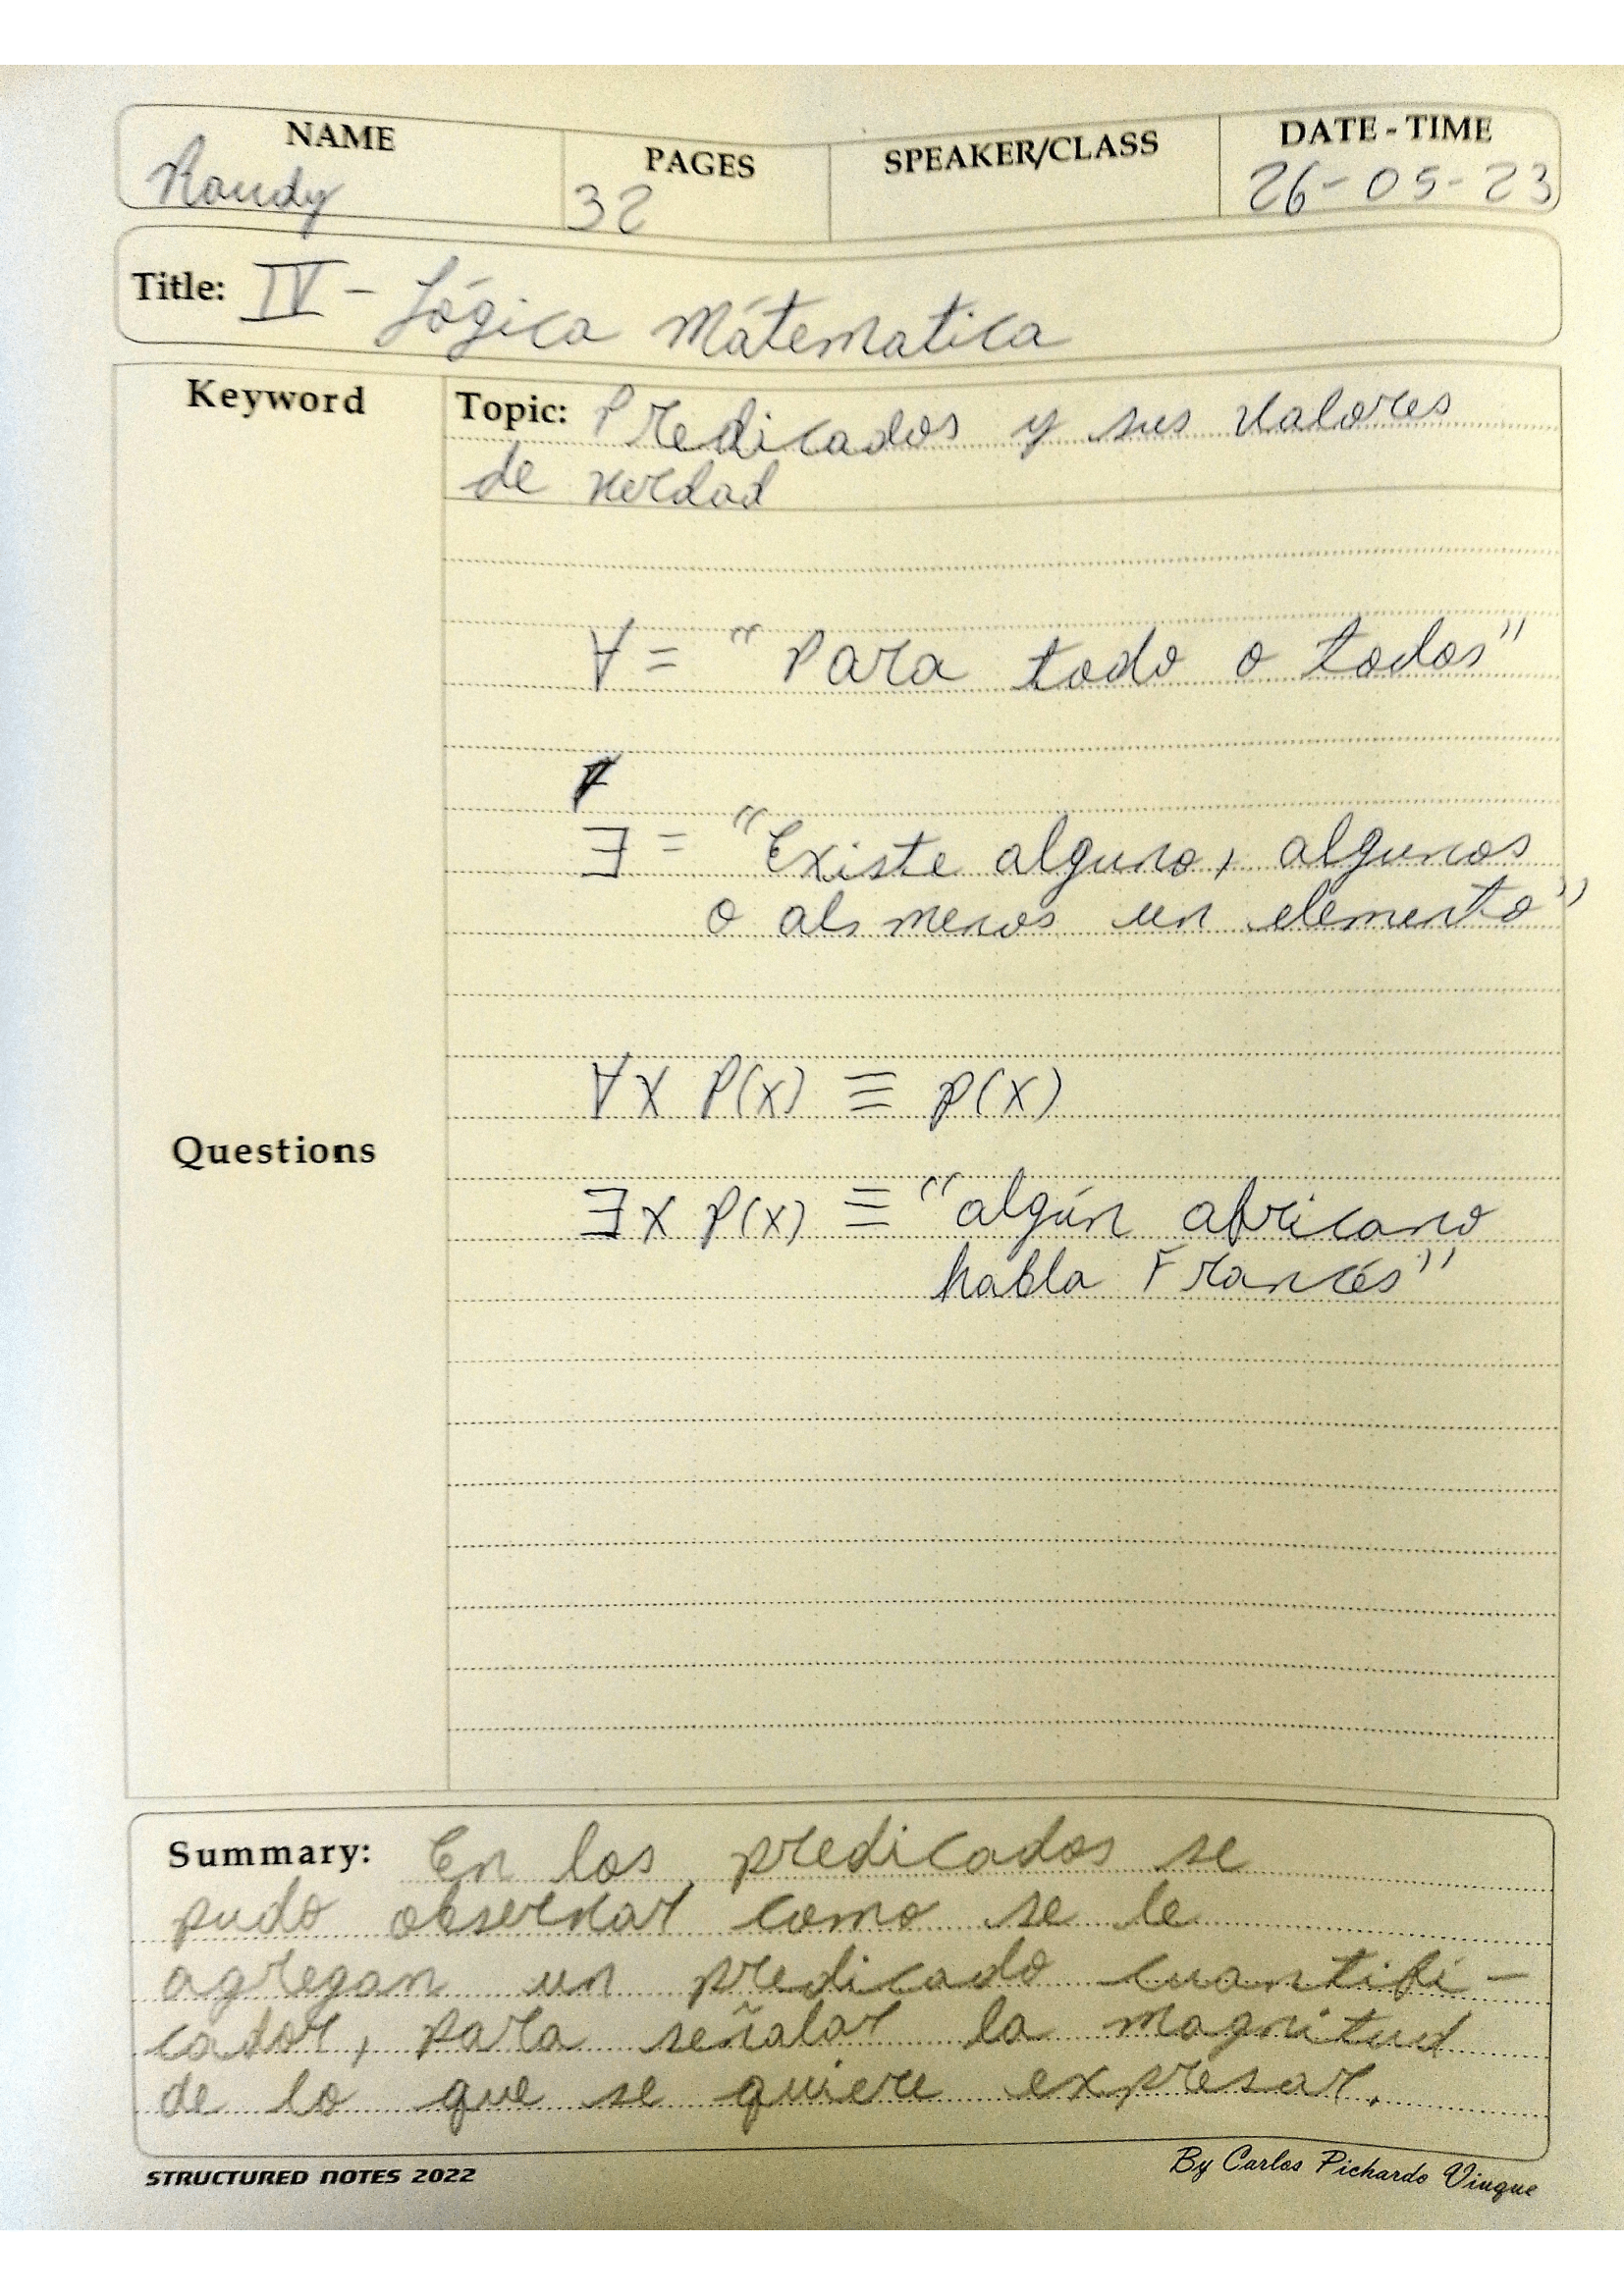 NAME PAGES SPEAKER/CLASS DATE - TIME
Randy 32 26-05-23
Title: IV - Lógica Mátematica
Keyword
Topic: Predicados y sus valores
de verdad
∀ = "Para todo o todos"
∃ = "Existe alguno, algunos
o als menos un elemento"
∀x P(x) ≡ p(x)
Questions
∃x P(x) ≡ "algún africano
habla Francés"
Summary: En los predicados se
pudo observar como se le
agregan un predicado cuantifi-
cador, para señalar la magnitud
de lo que se quiere expresar.
STRUCTURED NOTES 2022
By Carlos Pichardo Viuque